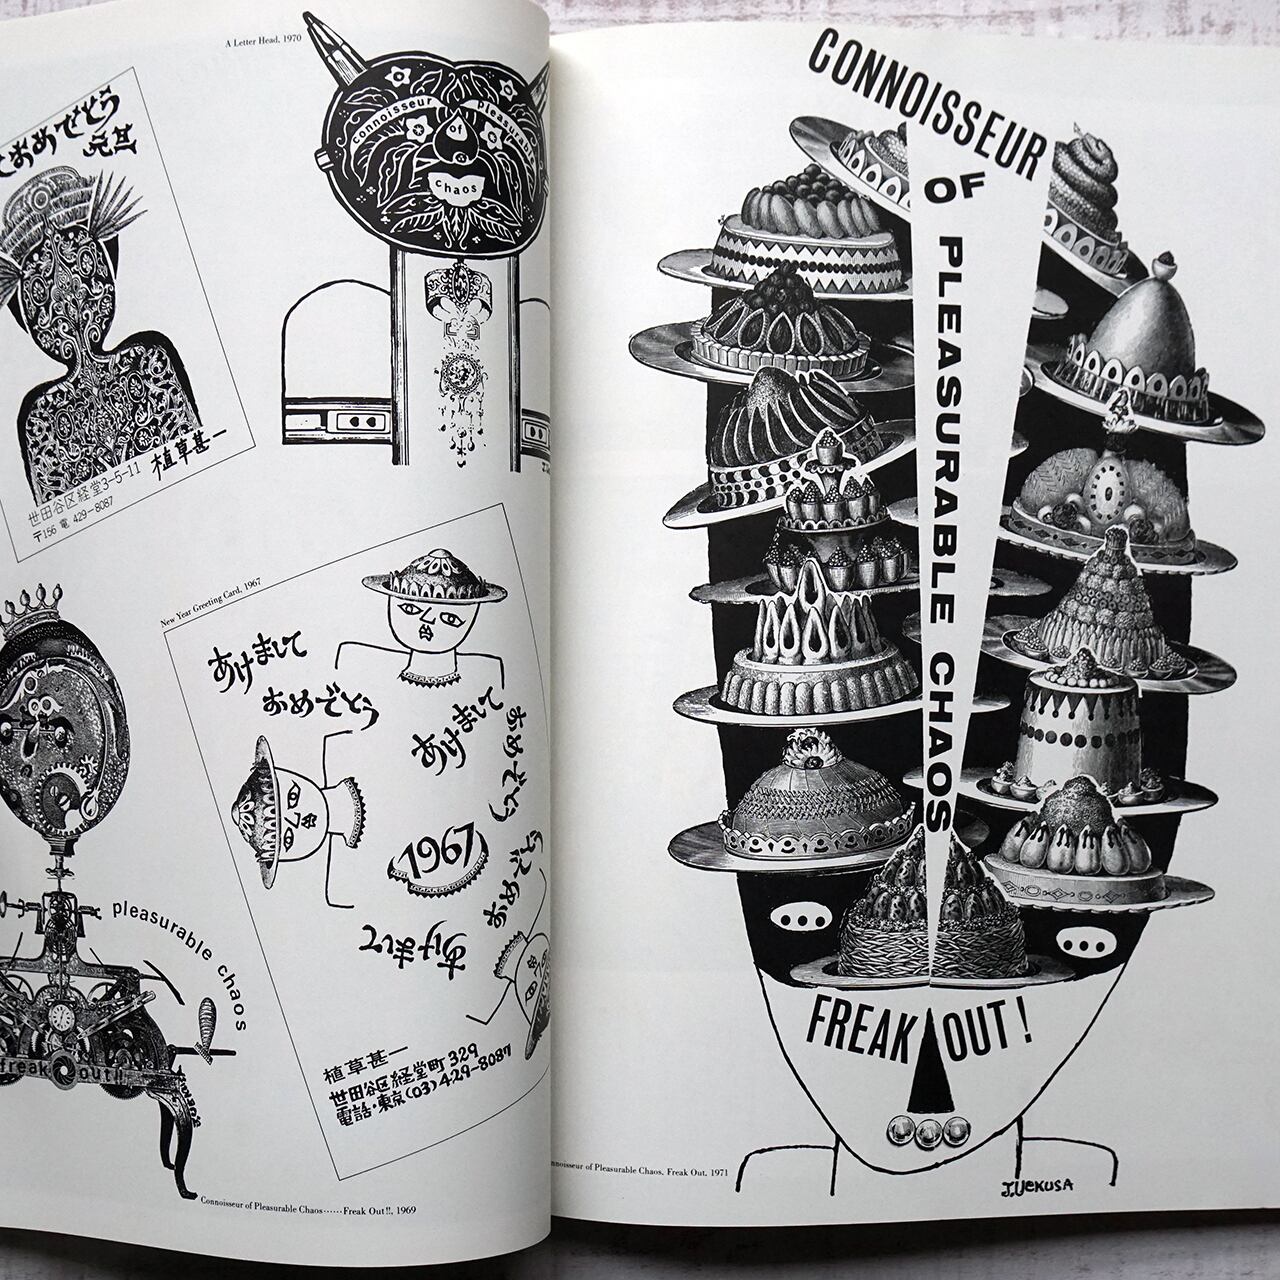 A Letter Head, 1970
おめでとう
connoisseur
of
pleasurable
chaos
植草甚一
世田谷区経堂3-5-11
〒156 電 429-8087
New Year Greeting Card, 1967
あけまして
おめでとう
あけまして
おめでとう
1967
あけまして
おめでとう
植草甚一
世田谷区経堂町329
電話・東京(03)429-8087
pleasurable chaos
freak out!!
Connoisseur of Pleasurable Chaos……Freak Out!!, 1969
CONNOISSEUR
OF
PLEASURABLE CHAOS
FREAK OUT!
J.UEKUSA
nnoisseur of Pleasurable Chaos, Freak Out, 1971